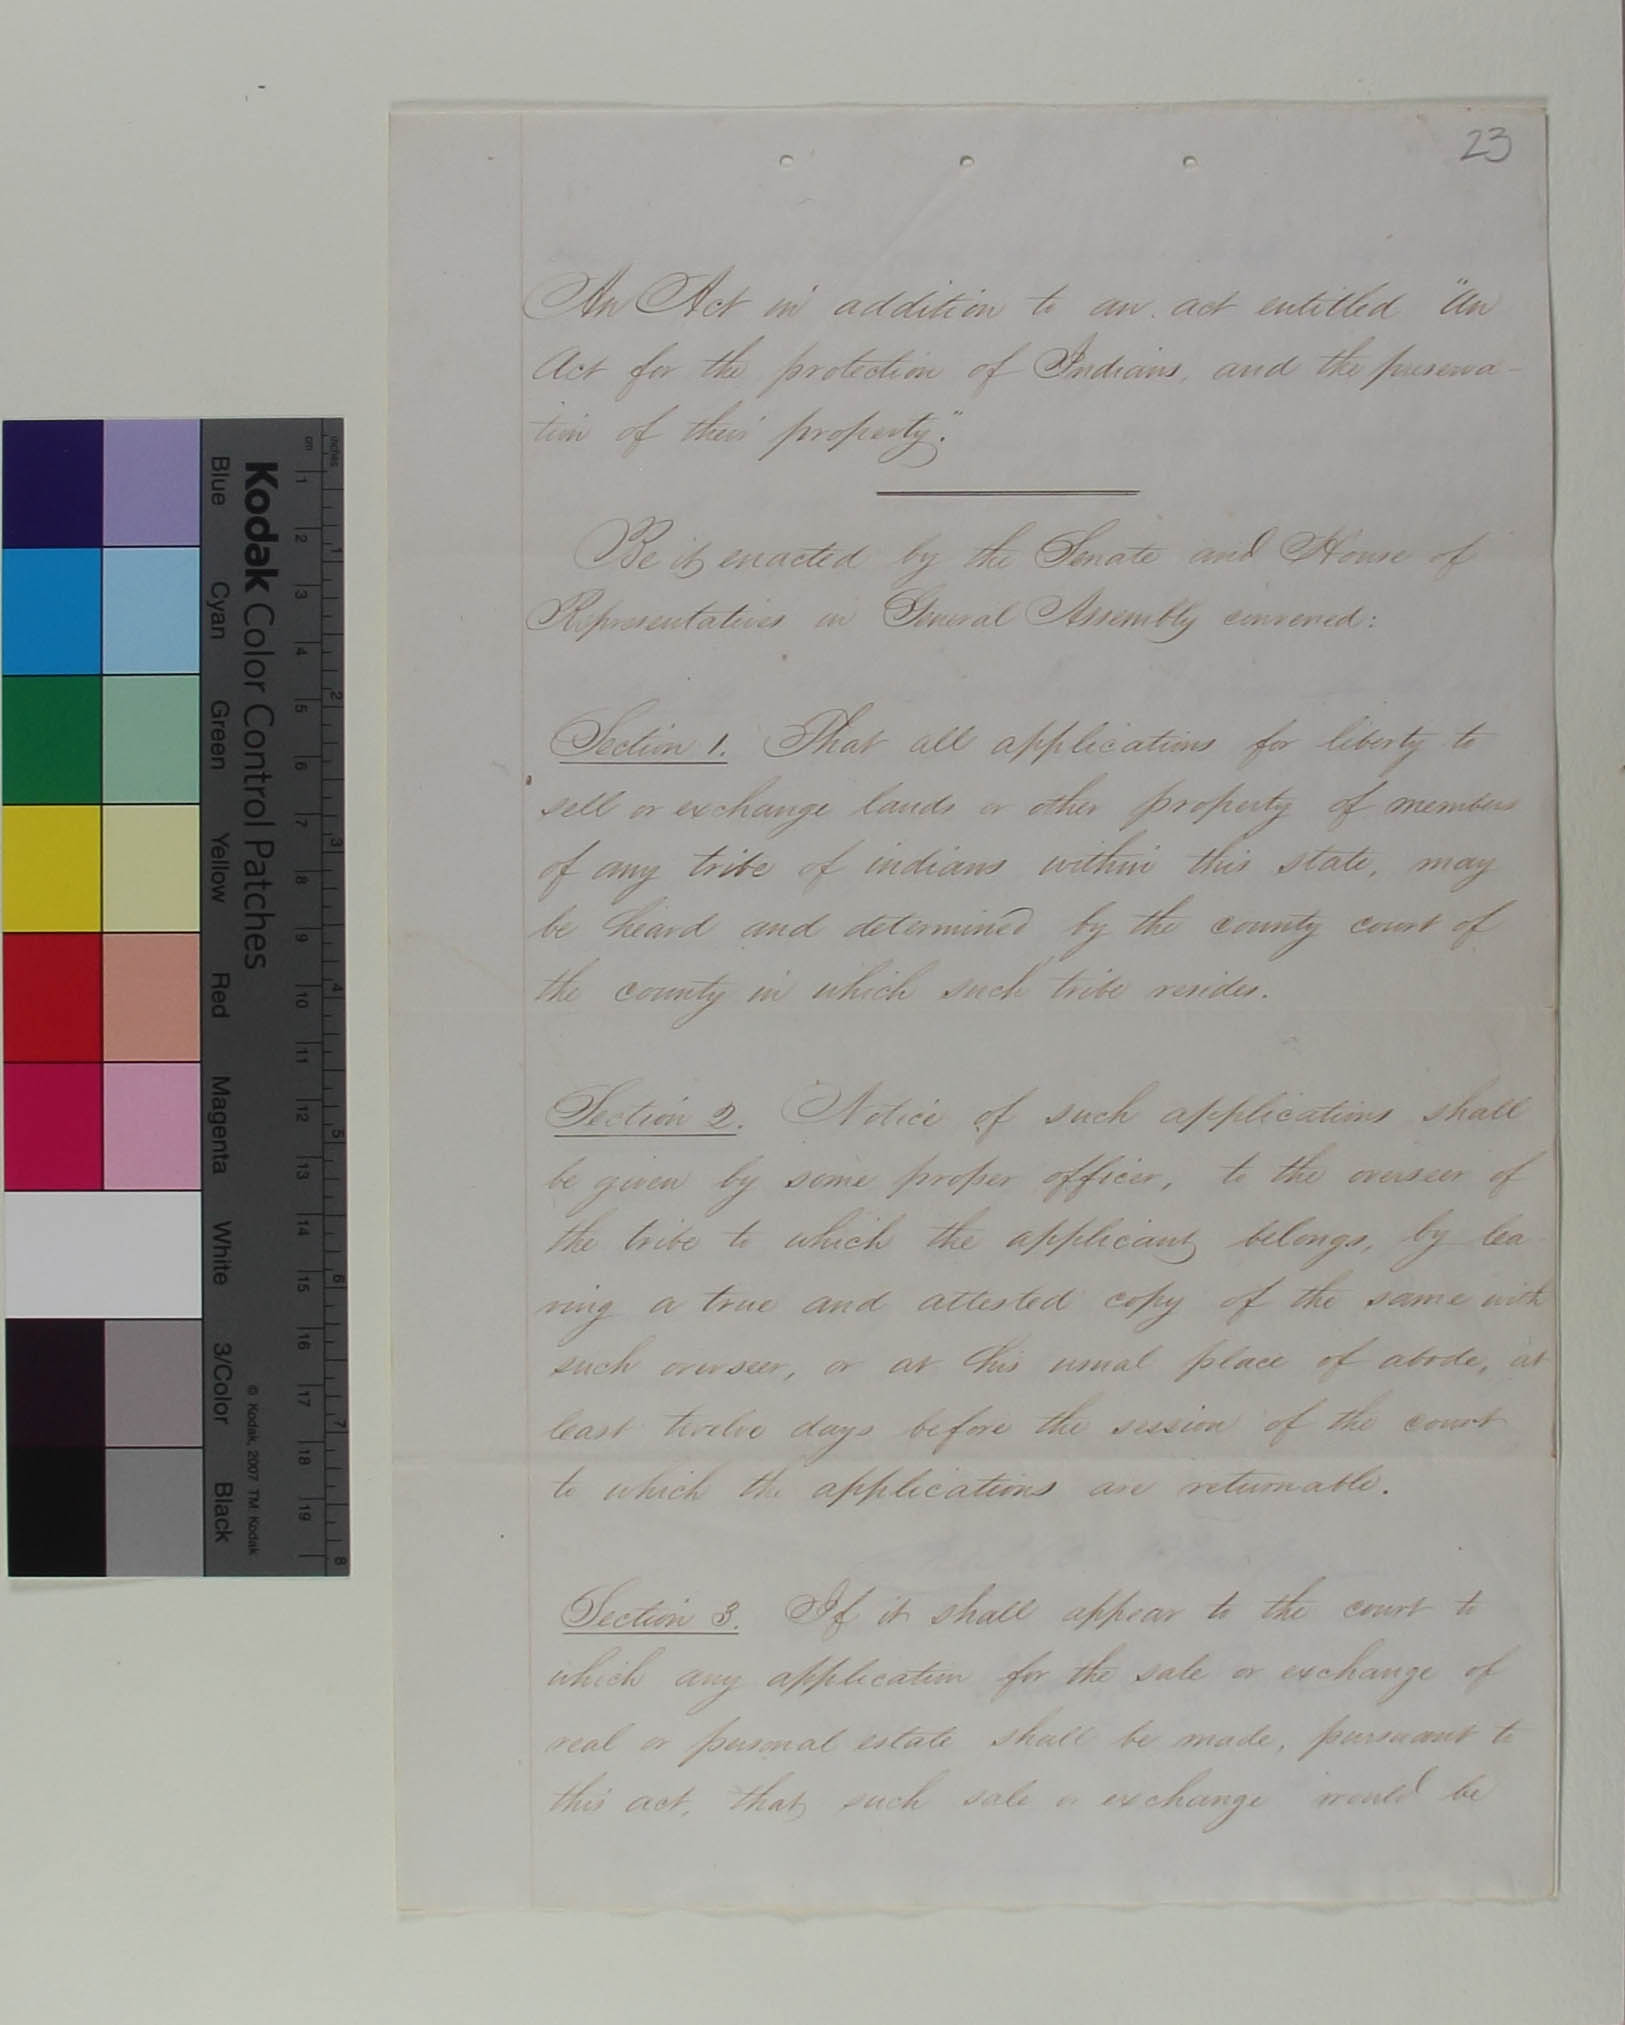 23
An Act in addition to an act entitled "An
Act for the protection of Indians, and the preserva-
tion of their property."
Be it enacted by the Senate and House of
Representatives in General Assembly convened:
Section 1. That all applications for liberty to
sell or exchange lands or other property of members
of any tribe of indians within this state, may
be heard and determined by the county court of
the county in which such tribe resides.
Section 2. Notice of such applications shall
be given by some proper officer, to the overseer of
the tribe to which the applicant belongs, by lea
ving a true and attested copy of the same with
such overseer, or at his usual place of abode, at
least twelve days before the session of the court
to which the applications are returnable.
Section 3. If it shall appear to the court to
which any application for the sale or exchange of
real or personal estate shall be made, pursuant to
this act, that such sale or exchange would be
Kodak Color Control Patches
© Kodak, 2007 TM: Kodak
Blue Cyan Green Yellow Red Magenta White 3/Color Black
inches 1 2 3 4 5 6 7 8
cm 1 2 3 4 5 6 7 8 9 10 11 12 13 14 15 16 17 18 19